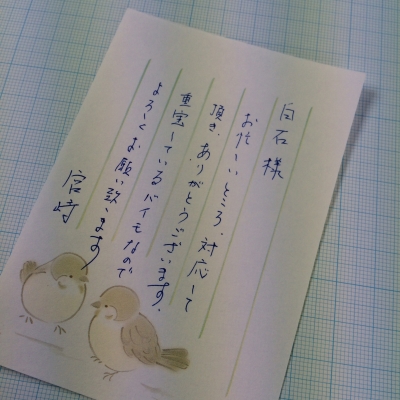 白石様
お忙しいところ、対応して
頂き、ありがとうございます。
重宝しているバイモなので
よろしくお願い致します
宮崎